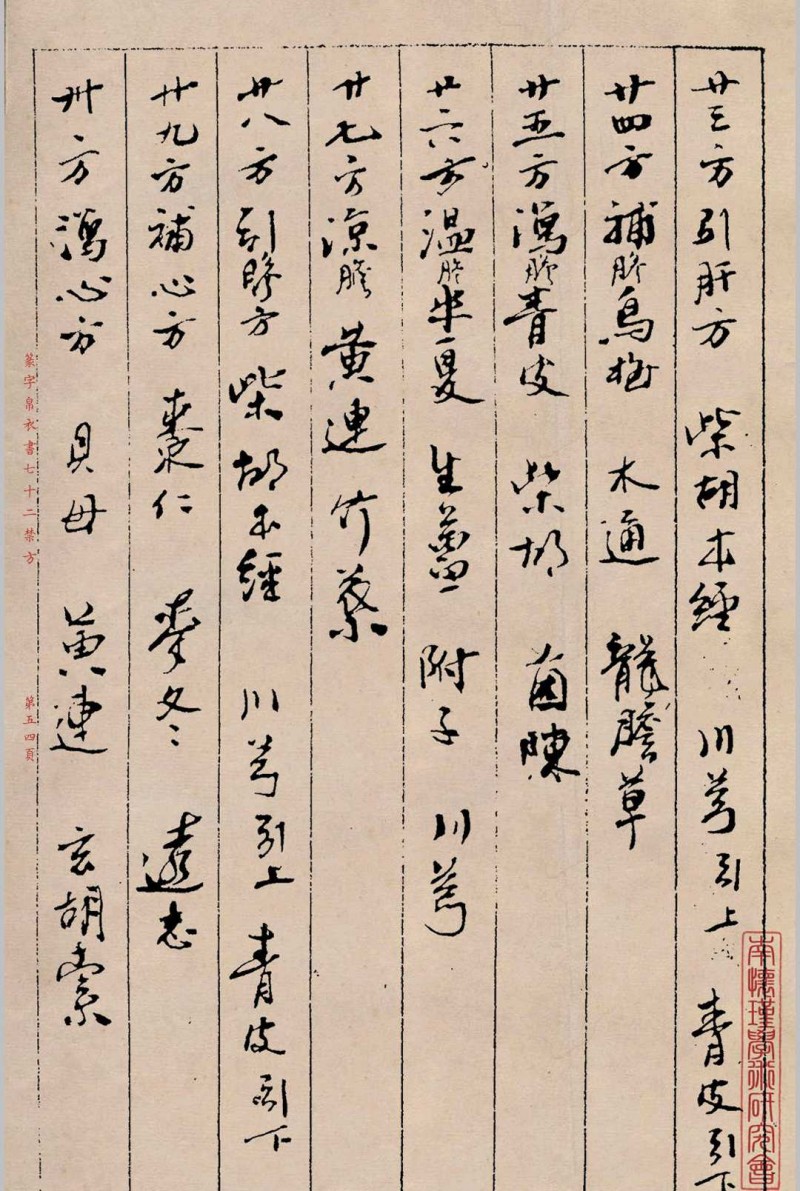 廿三方引肝方 柴胡本經 川芎引上 青皮引下
廿四方補胆烏梅 木通 龍膽草
廿五方瀉胆青皮 柴胡 茵陳
廿六方温胆半夏 生薑 附子 川芎
廿七方涼膽 黃連 竹葉
廿八方引胆方 柴胡本經 川芎引上 青皮引下
廿九方補心方 棗仁 麥冬 遠志
卅方瀉心方 貝母 黃連 玄胡索
篆字帛衣書七十二禁方 第五四頁
南懷瑾學術研究會